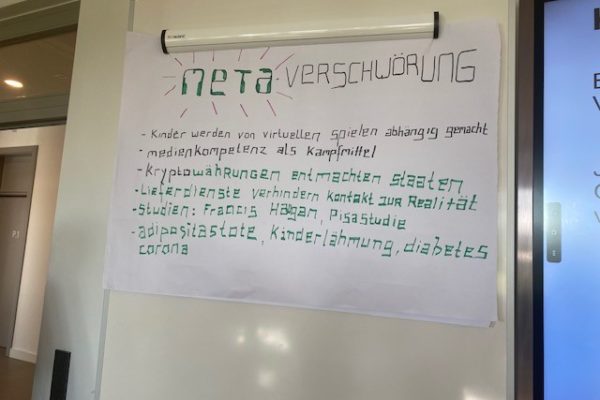 META-VERSCHWÖRUNG
- Kinder werden von virtuellen spielen abhängig gemacht
- medienkompetenz als Kampfmittel
- Kryptowährungen entmachten staaten
- Lieferdienste verhindern Kontakt zur Realität
- Studien: Francis Halgan, Pisastudie
- adipositastote, Kinderlähmung, diabetes
corona
P.1